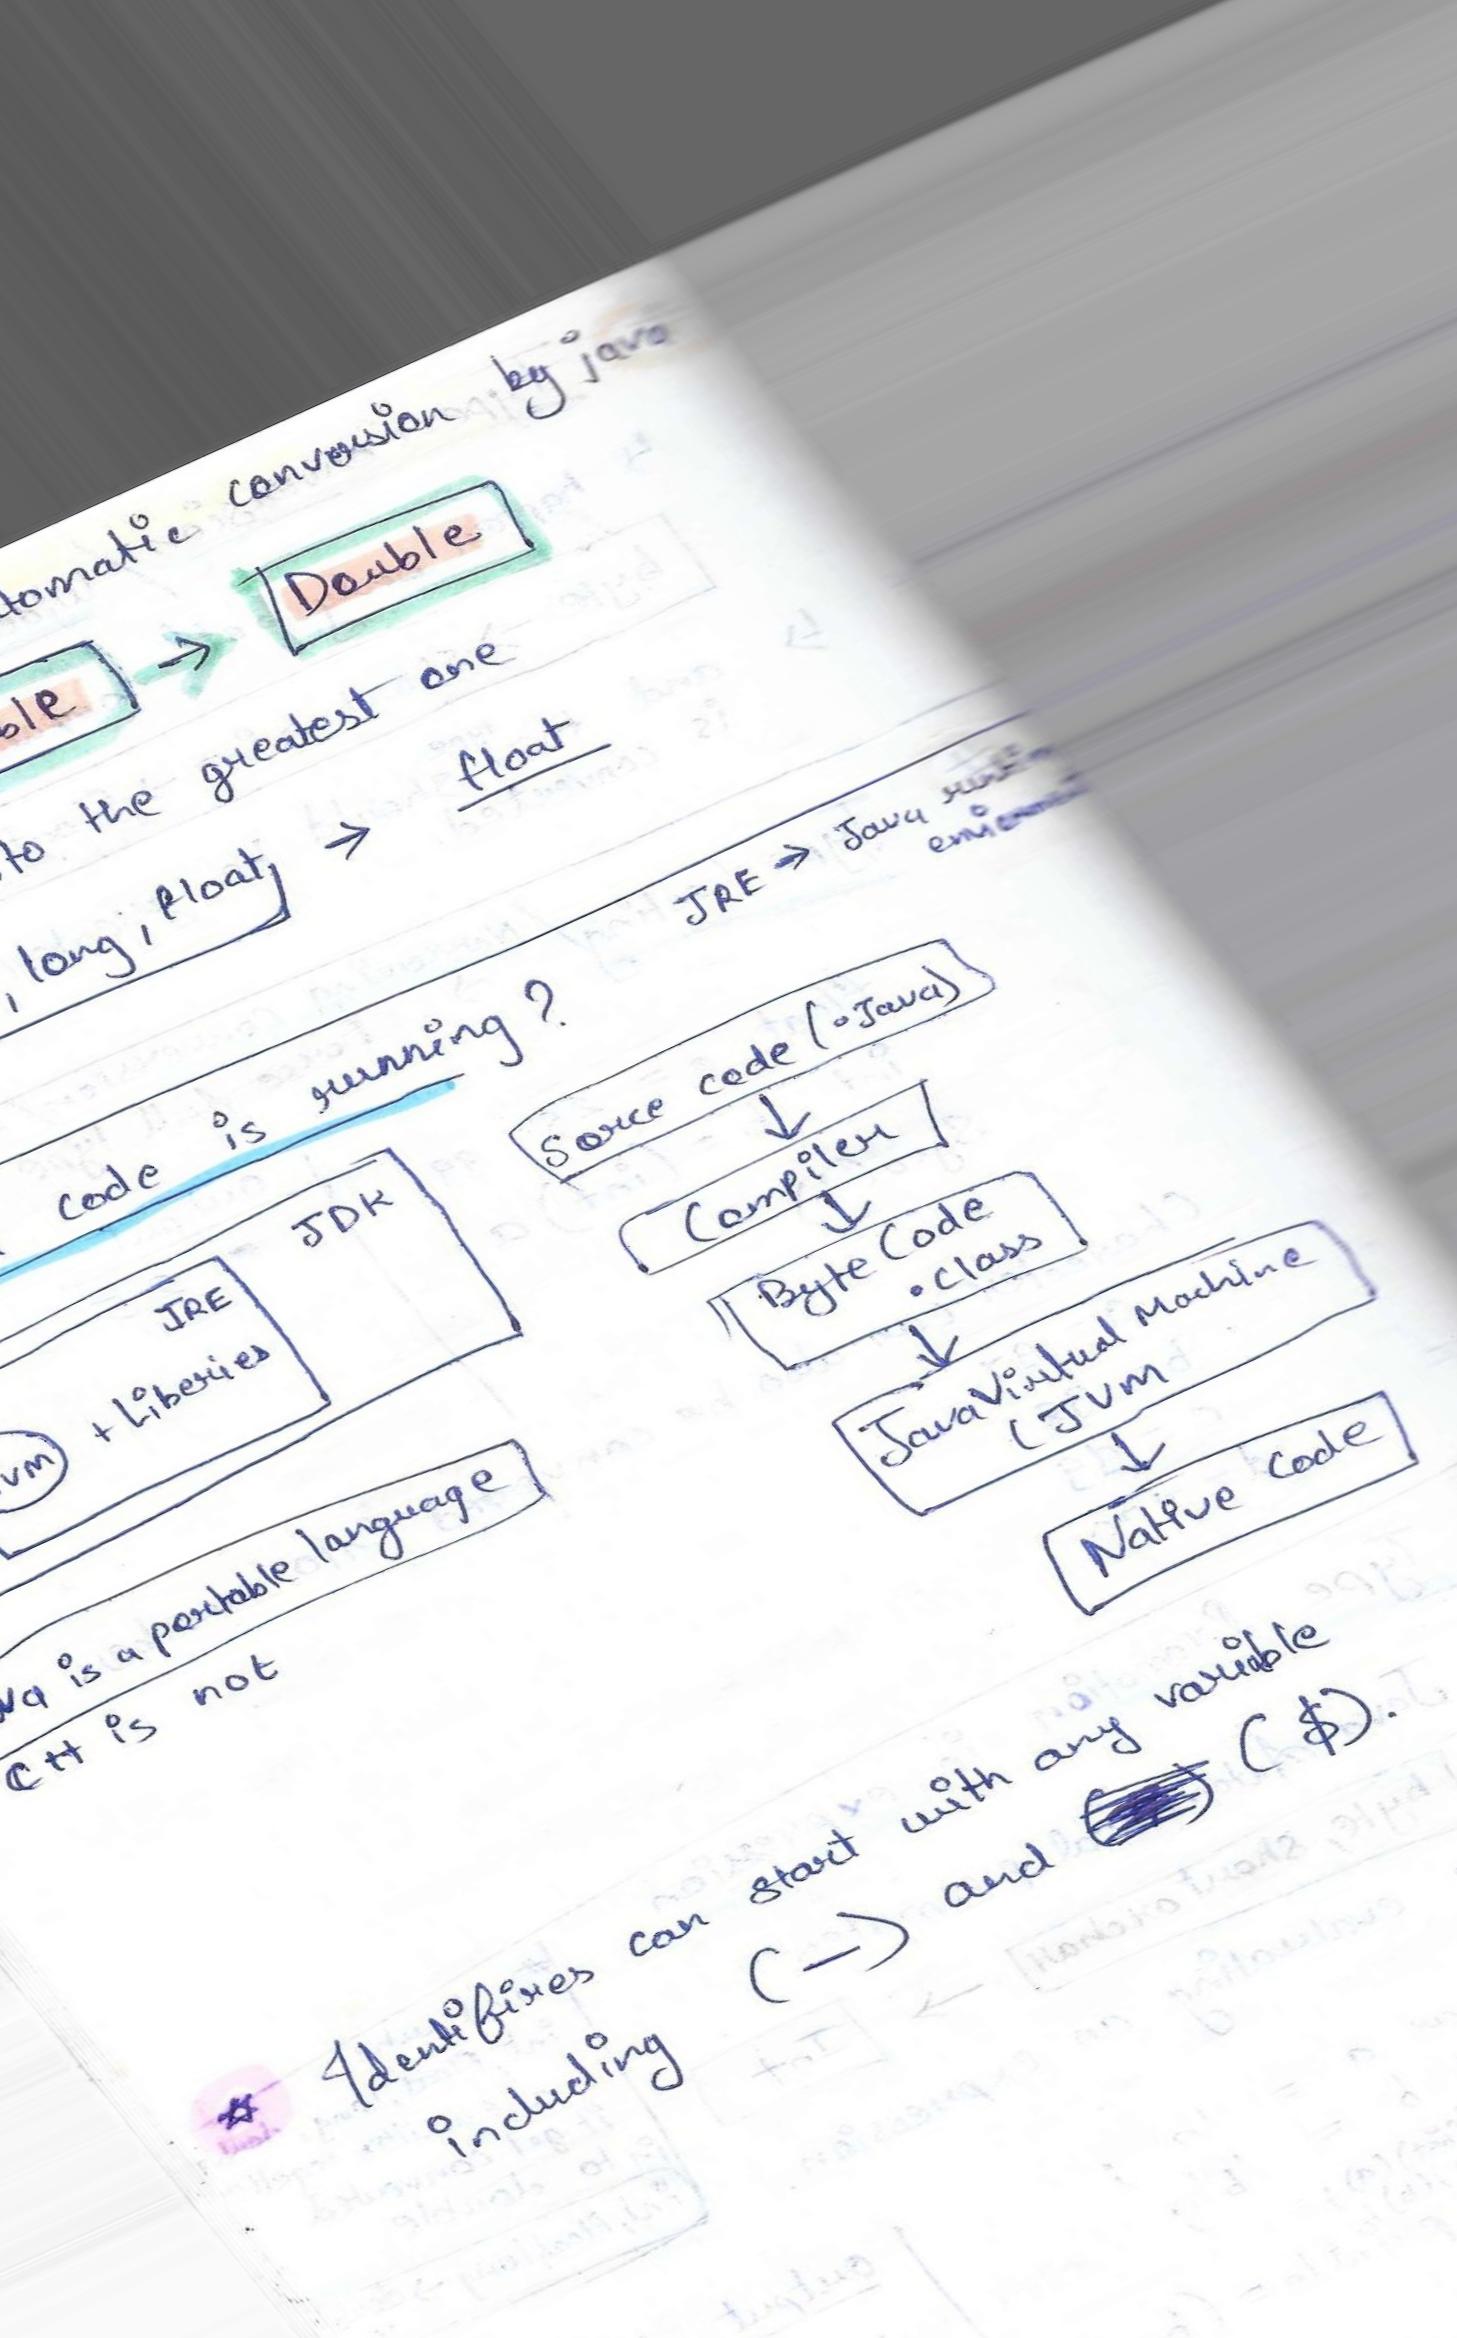 tomatic conversion by java
ble → Double
to the greatest one
, long, float, → float
JRE → Java
code is running?
JDK
JRE
vm + Liberies
Sorce code (.Java)
↓
Compiler
↓
Byte Code
.class
↓
Java Virtual Machine
(JVM
↓
Native Code
va is a portable language
C++ is not
* Identifires can start with any variable
including (_) and ($).